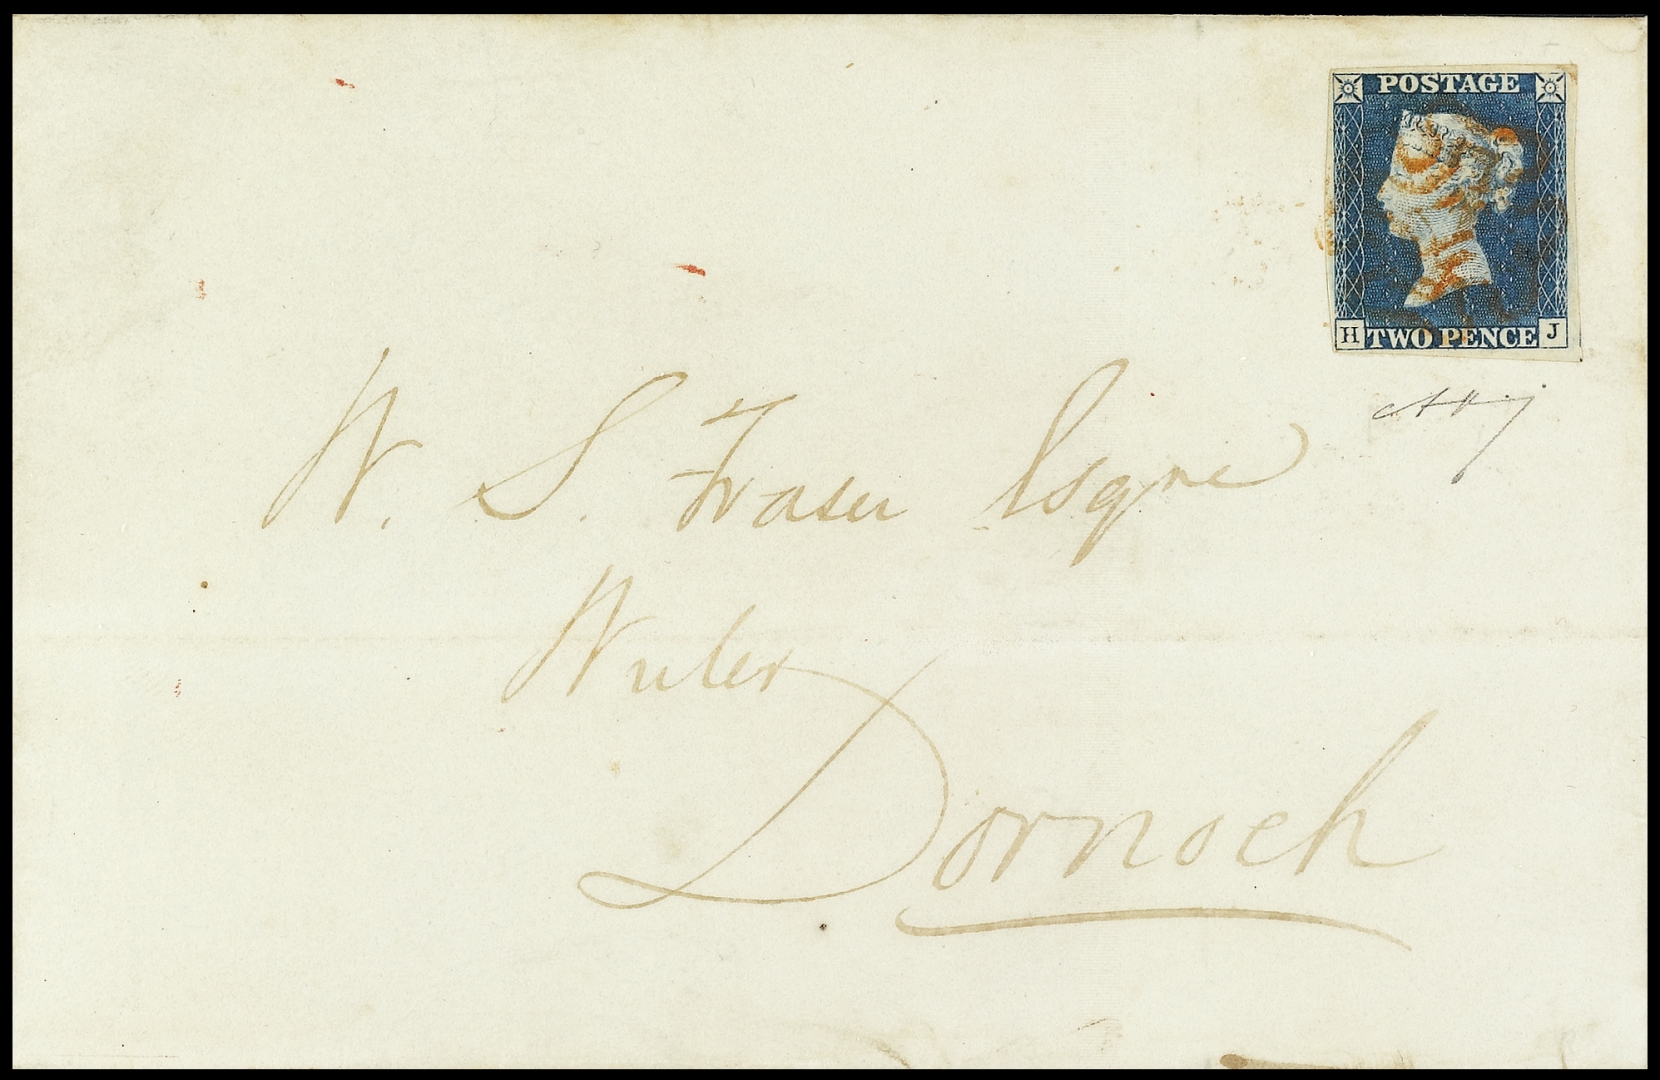 POSTAGE
H TWO PENCE J
W. S. Fraser Esqre
Writer
Dornoch